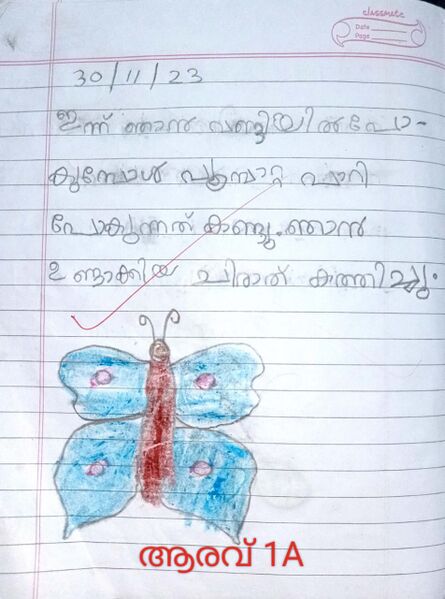 classmate
Date
Page
30/11/23
ഇന്ന് ഞാൻ വണ്ടിയിൽ പോ-
കുമ്പോൾ പൂമ്പാറ്റ പാറി
പോകുന്നത് കണ്ടു. ഞാൻ
ഉണ്ടാക്കിയ ചിരാത് കത്തിച്ചു.
ആരവ് 1A